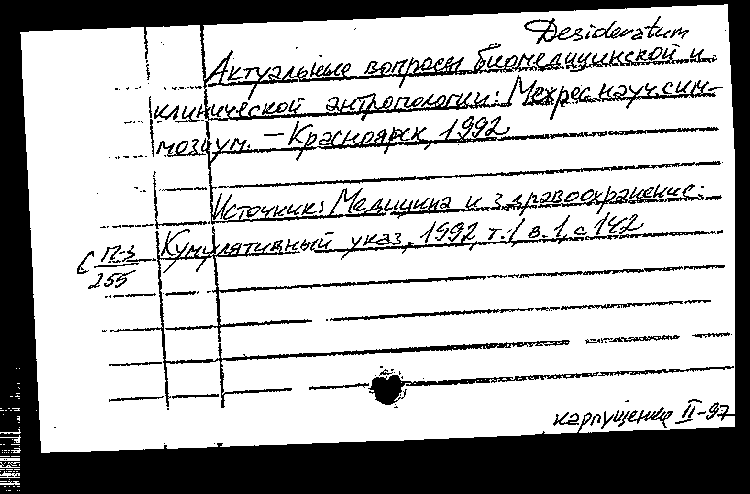 Desideratum
Актуальные вопросы биомедицинской и
клинической антропологии: Межрес науч. сим-
мозиум. – Красноярск, 1992
Источник: Медицина и здравоохранение:
Кумулятивный указ, 1992, т. 1, в. 1, с 142
С П-3
255
карпущенко II-97